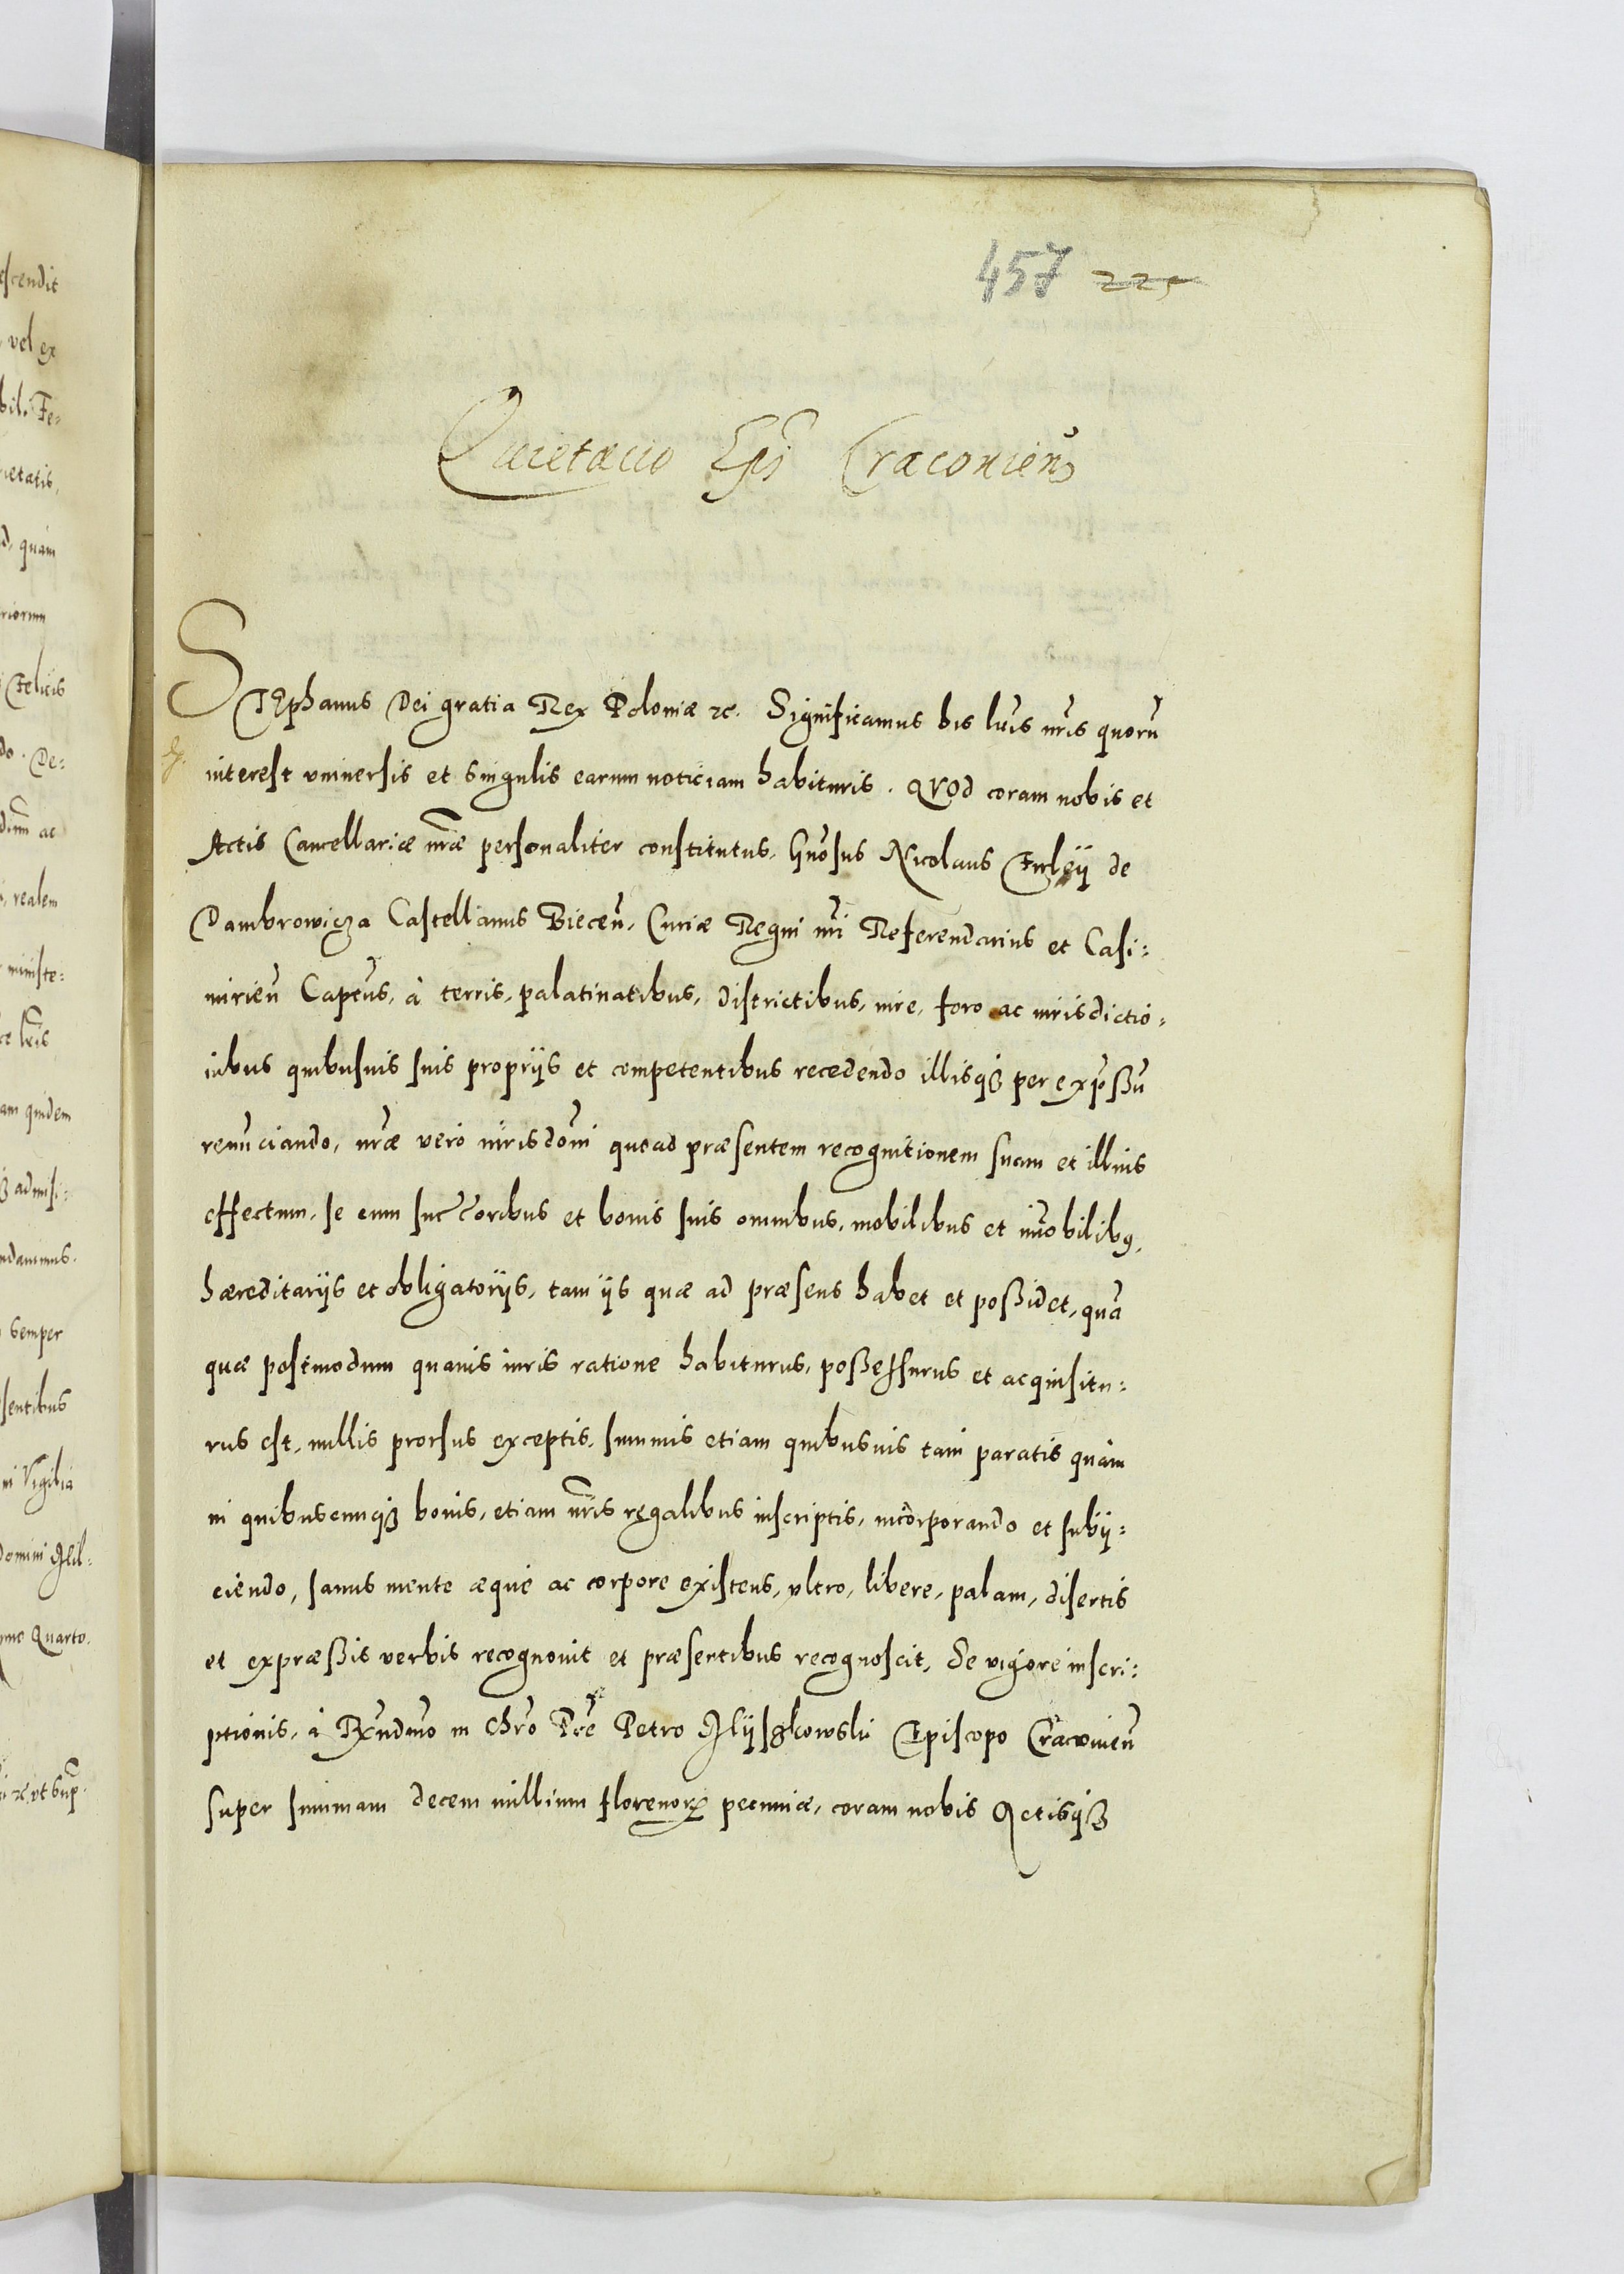 457 225
Quietacio Epi Cracovien
STEphanus Dei gratia Rex Poloniæ etc. Significamus his lris nris quorū
interest vniuersis et singulis earum noticiam habituris. QVOd coram nobis et
Actis Cancellariæ nræ personaliter constitutus, Gnosus Nicolaus Firleÿ de
Dambrowicza Castellanus Biecen, Curiæ Regni nri Referendarius et Casi:
mirien Capeus, à terris, palatinatibus, districtibus, iure, foro ac iurisdictio:
nibus quibusuis suis proprijs et competentibus recedendo illisqȝ per expßū
renūciando, nræ verò iurisdoni quoad præsentem recognitionem suam et illius
effectum, se cum succoribus et bonis suis omnibus, mobilibus et imobilibꝰ,
hæreditarijs et obligatorijs, tam ijs quæ ad præsens habet et poßidet, quā
quæ postmodum quauis iuris ratione habiturus, poßessurus et acquisitu:
rus est, nullis prorsus exceptis, summis etiam quibusuis tam paratis quàm
in quibuscunqȝ bonis, etiam nris regalibus inscriptis, incorporando et subij:
ciendo, sanus mente æque ac corpore existens, vltro, libere, palam, disertis
et expræßis verbis recognouit et præsentibus recognoscit, Se vigore inscri:
ptionis, à Rxndmo in Chro Pre Petro Mÿszkowski Episcopo Cracouien
super summam decem millium florenorꝝ pecuniæ, coram nobis Actisqȝ
escendit
vel ex
bil. Fe:
ietatis,
d, quàm
riorum
Felicis
do. De:
ac
realem
ministe:
lris
am quidem
admisi:
ndamus.
Semper
sentibus
ni Vigilia
Domini Mil:
mo Quarto.
etc. vt sup.